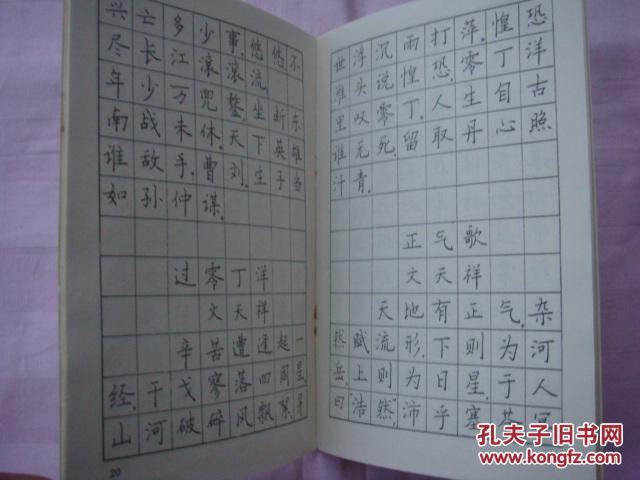 兴亡多少事，悠悠，不
尽长江滚滚流。
年少万兜鍪，坐断东
南战未休。天下英雄
谁敌手，曹刘。生子当
如孙仲谋。
过零丁洋
文天祥
辛苦遭逢起一
经，干戈寥落四周星。
山河破碎风飘絮，身
20
世浮沉雨打萍。惶恐
滩头说惶恐，零丁洋
里叹零丁。人生自古
谁无死，留取丹心照
汗青。
正气歌
文天祥
天地有正气，杂
然赋流形。下则为河
岳，上则为日星。于人
曰“浩然”，沛乎塞苍冥
孔夫子旧书网
www.kongfz.com